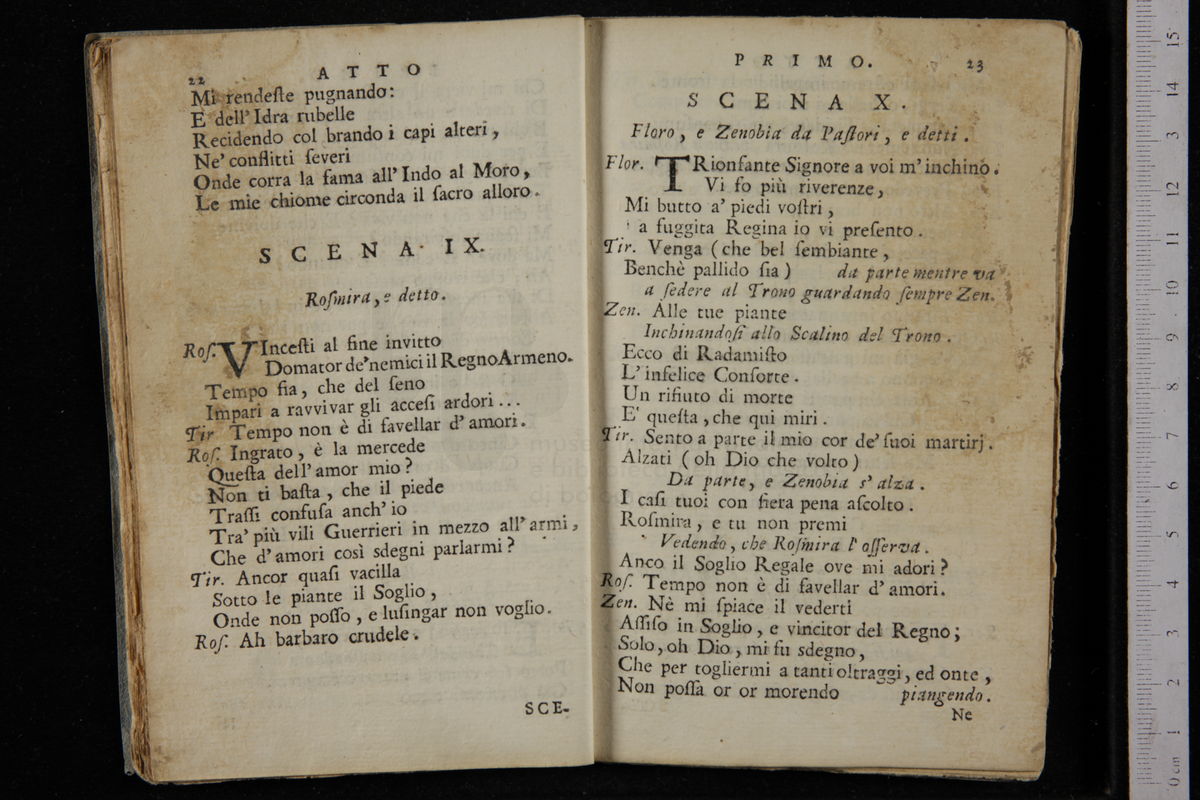 22 ATTO
Mi rendeſte pugnando:
E dell' Idra rubelle
Recidendo col brando i capi alteri,
Ne' conflitti ſeveri
Onde corra la fama all' Indo al Moro,
Le mie chiome circonda il ſacro alloro.
SCENA IX.
Roſmira, e detto.
Roſ. VInceſti al fine invitto
Domator de' nemici il Regno Armeno.
Tempo fia, che del ſeno
Impari a ravvivar gli acceſi ardori...
Tir Tempo non è di favellar d' amori.
Roſ. Ingrato, è la mercede
Queſta dell' amor mio?
Non ti baſta, che il piede
Traſſi confuſa anch' io
Tra' più vili Guerrieri in mezzo all' armi,
Che d' amori così sdegni parlarmi?
Tir. Ancor quaſi vacilla
Sotto le piante il Soglio,
Onde non poſſo, e luſingar non voglio.
Roſ. Ah barbaro crudele.
SCE-
PRIMO. 23
SCENA X.
Floro, e Zenobia da Paſtori, e detti.
Flor. TRionfante Signore a voi m' inchino.
Vi fo più riverenze,
Mi butto a' piedi voſtri,
a fuggita Regina io vi preſento.
Tir. Venga (che bel ſembiante,
Benchè pallido ſia) da parte mentre va
a ſedere al Trono guardando ſempre Zen.
Zen. Alle tue piante
Inchinandoſi allo Scalino del Trono.
Ecco di Radamiſto
L' infelice Conſorte.
Un rifiuto di morte
E' queſta, che qui miri.
Tir. Sento a parte il mio cor de' ſuoi martirj.
Alzati (oh Dio che volto)
Da parte, e Zenobia s' alza.
I caſi tuoi con fiera pena aſcolto.
Roſmira, e tu non premi
Vedendo, che Roſmira l' oſſerva.
Anco il Soglio Regale ove mi adori?
Roſ. Tempo non è di favellar d' amori.
Zen. Nè mi ſpiace il vederti
Aſſiſo in Soglio, e vincitor del Regno;
Solo, oh Dio, mi fu sdegno,
Che per togliermi a tanti oltraggi, ed onte,
Non poſſa or or morendo piangendo.
Ne
15
14
13
12
11
10
9
8
7
6
5
4
3
2
1
0 cm